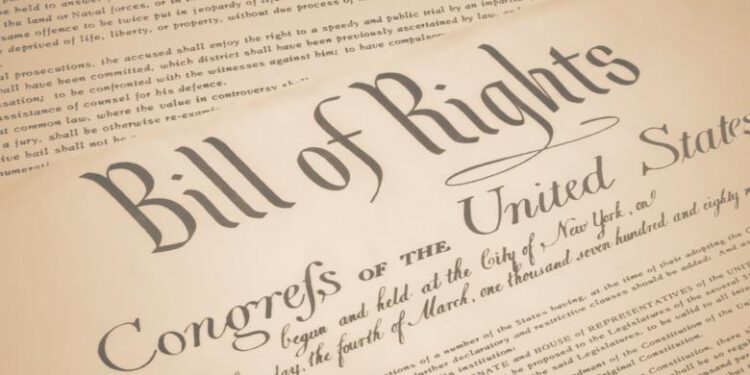 be held to answer
the land or Naval forces, or in
same offence to be twice put in jeopardy of life
deprived of life, liberty, or property, without due process of
al prosecutions, the accused shall enjoy the right to a speedy and public trial by an impar
hall have been committed, which district shall have been previously ascertained by law, an
sation; to be confronted with the witnesses against him; to have compulso
ssistance of counsel for his defence.
t common law, where the value in controversy sha
a jury, shall be otherwise re-exam
ive bail shall not be
numerati
Bill of Rights
Congreſs OF THE United States
begun and held at the City of New York, on
day, the fourth of March, one thousand seven hundred and eighty n
ions of a number of the States having, at the time of their adopting the C
further declaratory and restrictive clauses should be added: And a
its institution:
NATE and HOUSE of REPRESENTATIVES of the UNIT
be proposed to the Legislatures of the several S
the said Legislatures, to be valid to all inte
ndment of the Constitution of the Un
iginal Constitution.